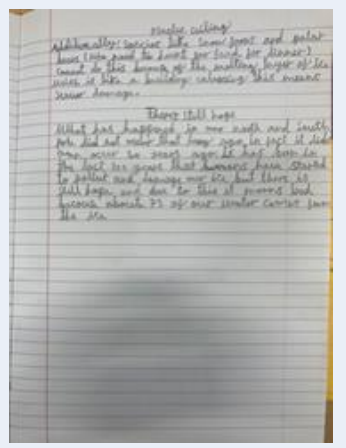 Additionally: species like snow foxes and polar
bears (who need to hunt for food for dinner)
cannot do this because of the melting layer of ice
it like a building collapsing this means
damage.
There's still hope
What has happened in our north and south
pole did not that long ago in fact it did
occur 80 years ago it has been in
the last years that humans have started
to pollute and damage our ice but there is
still hope and due to this it means bad
because about 75 of our water comes from
the ice